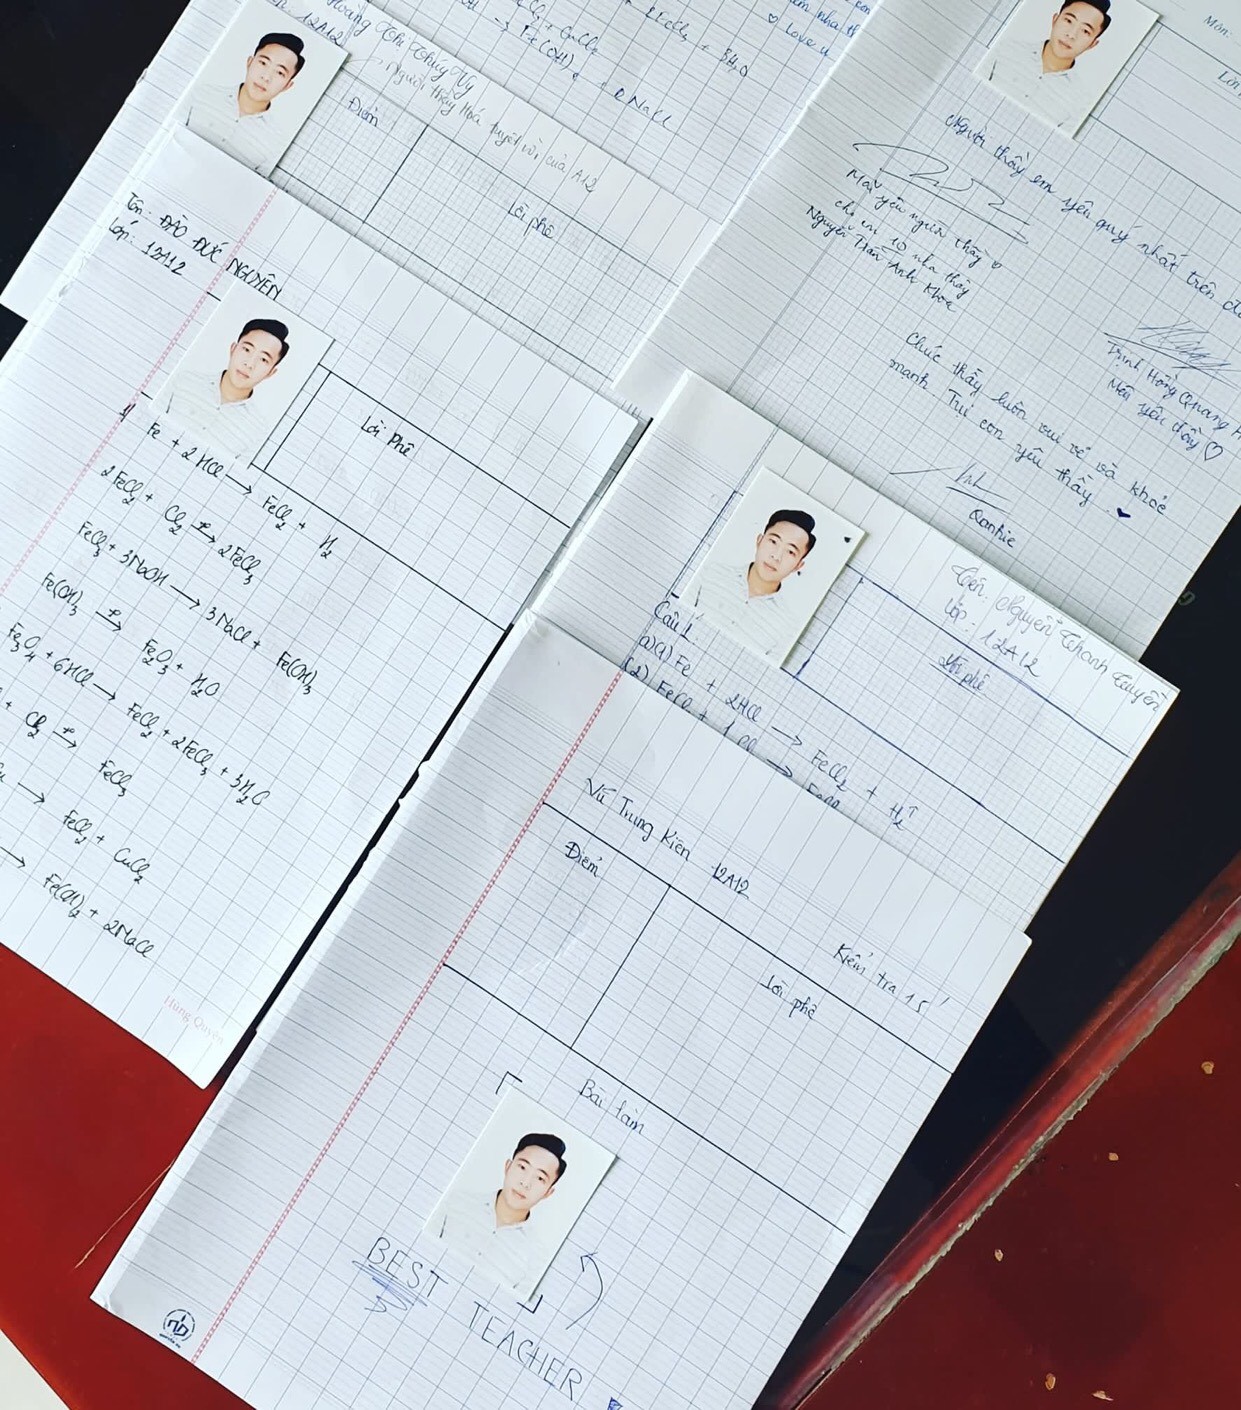 Hoàng Thị Thúy Vy
12A12
Người thầy Hoá tuyệt vời của A12
Điểm
Lời phê
2FeCl3 + 3H2O
FeCl2 + CuCl2
→ Fe(OH)2 + 2NaCl
Love u
Môn:
Người thầy em yêu quý nhất trên
Mãi yêu người thầy ♡
cho em 10 nha thầy
Nguyễn Trần Anh Khoa
Trịnh Hồng Quang
Mãi yêu thầy ♡
Chúc thầy luôn vui vẻ và khoẻ
mạnh. Tụi con yêu thầy ♥
Qanhie
Tên: ĐÀO ĐỨC NGUYÊN
Lớp: 12A12
Lời phê
Fe + 2HCl → FeCl2 + H2
2FeCl2 + Cl2 →t° 2FeCl3
FeCl3 + 3NaOH → 3NaCl + Fe(OH)3
Fe(OH)3 →t° Fe2O3 + H2O
Fe3O4 + 6HCl → FeCl2 + 2FeCl3 + 3H2O
+ Cl2 →t° FeCl3
→ FeCl2 + CuCl2
→ Fe(OH)2 + 2NaCl
Hùng Quyên
Tên: Nguyễn Thanh Tuyền
Lớp: 12A12
Lời phê
Câu 1
a) (1) Fe + 2HCl → FeCl2 + H2↑
(2) FeCl2 +
Vũ Trung Kiên 12A12
Kiểm tra 15'
Điểm
Lời phê
Bài làm
BEST TEACHER